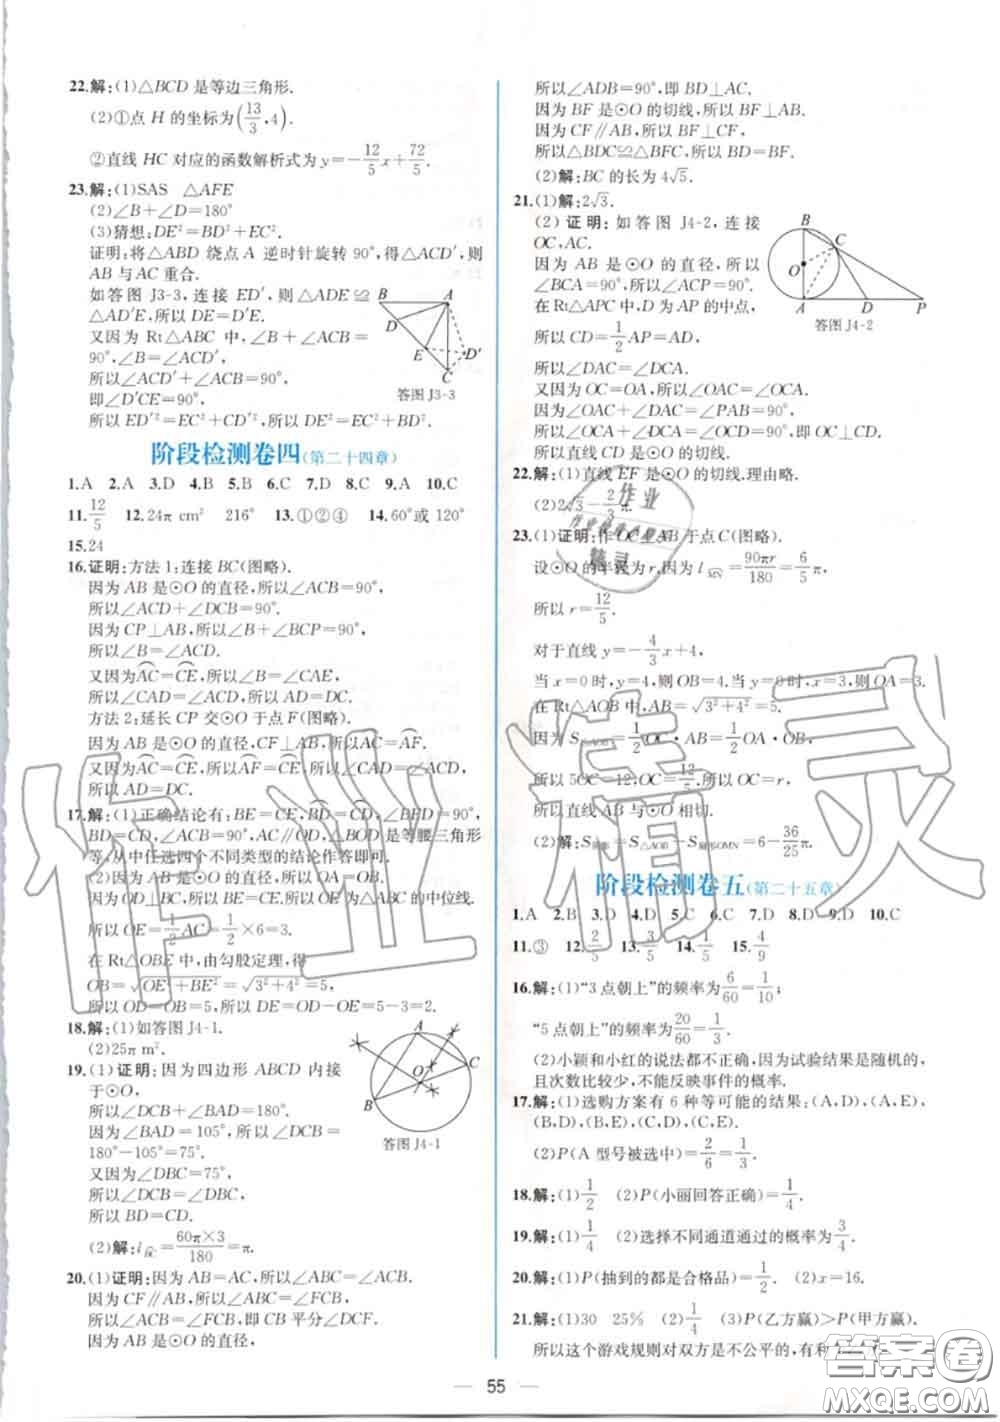 22.解:(1)△BCD 是等边三角形.
(2)①点 H 的坐标为(13/3,4).
②直线 HC 对应的函数解析式为 y=-12/5x+72/5.
23.解:(1)SAS △AFE
(2)∠B+∠D=180°
(3)猜想:DE²=BD²+EC².
证明:将△ABD 绕点 A 逆时针旋转 90°,得△ACD′,则
AB 与 AC 重合.
如答图 J3-3,连接 ED′,则△ADE≌
△AD′E,所以 DE=D′E.
又因为 Rt△ABC 中,∠B+∠ACB=
90°,∠B=∠ACD′,
所以∠ACD′+∠ACB=90°,
即∠D′CE=90°,
所以 ED′²=EC²+CD′²,所以 DE²=EC²+BD².
B A D E D′ C
答图 J3-3
阶段检测卷四(第二十四章)
1.A 2.A 3.D 4.B 5.B 6.C 7.D 8.C 9.A 10.C
11.12/5 12.24π cm² 216° 13.①②④ 14.60°或 120°
15.24
16.证明:方法 1:连接 BC(图略).
因为 AB 是⊙O 的直径,所以∠ACB=90°,
所以∠ACD+∠DCB=90°.
因为 CP⊥AB,所以∠B+∠BCP=90°,
所以∠B=∠ACD.
又因为AC=CE,所以∠B=∠CAE,
所以∠CAD=∠ACD,所以 AD=DC.
方法 2:延长 CP 交⊙O 于点 F(图略).
因为 AB 是⊙O 的直径,CF⊥AB,所以AC=AF.
又因为AC=CE,所以AF=CE,所以∠ACD=∠CAD,
所以 AD=DC.
17.解:(1)正确结论有:BE=CE,BD=CD,∠BED=90°,
BD=CD,∠ACB=90°,AC∥OD,△BOD 是等腰三角形
等,从中任选四个不同类型的结论作答即可.
(2)因为 OD⊥BC,所以 BE=CE.所以 OE 为△ABC 的中位线.
所以 OE=1/2AC=1/2×6=3.
在 Rt△OBE 中,由勾股定理,得
OB=√OE²+BE²=√3²+4²=5,
所以 OD=OB=5,所以 DE=OD-OE=5-3=2.
18.解:(1)如答图 J4-1.
(2)25π m².
19.(1)证明:因为四边形 ABCD 内接
于⊙O,
所以∠DCB+∠BAD=180°.
因为∠BAD=105°,所以∠DCB=
180°-105°=75°.
又因为∠DBC=75°,
所以∠DCB=∠DBC,
所以 BD=CD.
A C O B
答图 J4-1
(2)解:l=60π×3/180=π.
20.(1)证明:因为 AB=AC,所以∠ABC=∠ACB.
因为 CF∥AB,所以∠ABC=∠FCB,
所以∠ACB=∠FCB,即 CB 平分∠DCF.
因为 AB 是⊙O 的直径,
所以∠ADB=90°,即 BD⊥AC.
因为 BF 是⊙O 的切线,所以 BF⊥AB.
因为 CF∥AB,所以 BF⊥CF,
所以△BDC≌△BFC,所以 BD=BF.
(2)解:BC 的长为 4√5.
21.(1)解:2√3.
(2)证明:如答图 J4-2,连接
OC,AC.
因为 AB 是⊙O 的直径,所以
∠BCA=90°,所以∠ACP=90°.
在 Rt△APC 中,D 为 AP 的中点,
所以 CD=1/2AP=AD,
所以∠DAC=∠DCA.
又因为 OC=OA,所以∠OAC=∠OCA.
因为∠OAC+∠DAC=∠PAB=90°,
所以∠OCA+∠DCA=∠OCD=90°,
所以直线 CD 是⊙O 的切线.
B C O A D P
答图 J4-2
22.解:(1)直线 EF 是⊙O 的切线.理由略.
(2)2√3-2/3π.
23.(1)证明:作 OC⊥AB 于点 C(图略).
设⊙O 的半径为 r,因为 l MN=90πr/180=6/5π,
所以 r=12/5.
对于直线 y=-4/3x+4,
当 x=0 时,y=4,则 OB=4.当 y=0 时,x=3,则 OA=3.
在 Rt△AOB 中,AB=√3²+4²=5.
因为 S△AOB=1/2OC·AB=1/2OA·OB,
所以 5OC=12,OC=12/5=r,
所以直线 AB 与⊙O 相切.
(2)解:S阴影=S△AOB-S扇形OMN=6-36/25π.
阶段检测卷五(第二十五章)
1.A 2.B 3.D 4.D 5.C 6.C 7.D 8.D 9.D 10.C
11.③ 12.2/5 13.4/5 14.1/5 15.4/9
16.解:(1)“3 点朝上”的频率为6/60=1/10;
“5 点朝上”的频率为20/60=1/3.
(2)小颖和小红的说法都不正确,因为试验结果是随机的,
且次数比较少,不能反映事件的概率.
17.解:(1)选购方案有 6 种等可能的结果:(A,D),(A,E),
(B,D),(B,E),(C,D),(C,E).
(2)P(A 型号被选中)=2/6=1/3.
18.解:(1)1/2 (2)P(小丽回答正确)=1/4.
19.解:(1)1/4 (2)选择不同通道通过的概率为3/4.
20.解:(1)P(抽到的都是合格品)=1/2. (2)x=16.
21.解:(1)30 25% (2)1/4 (3)P(乙方赢)>P(甲方赢),
所以这个游戏规则对双方是不公平的,有利
55
作业精灵
答案圈
MXQE.COM